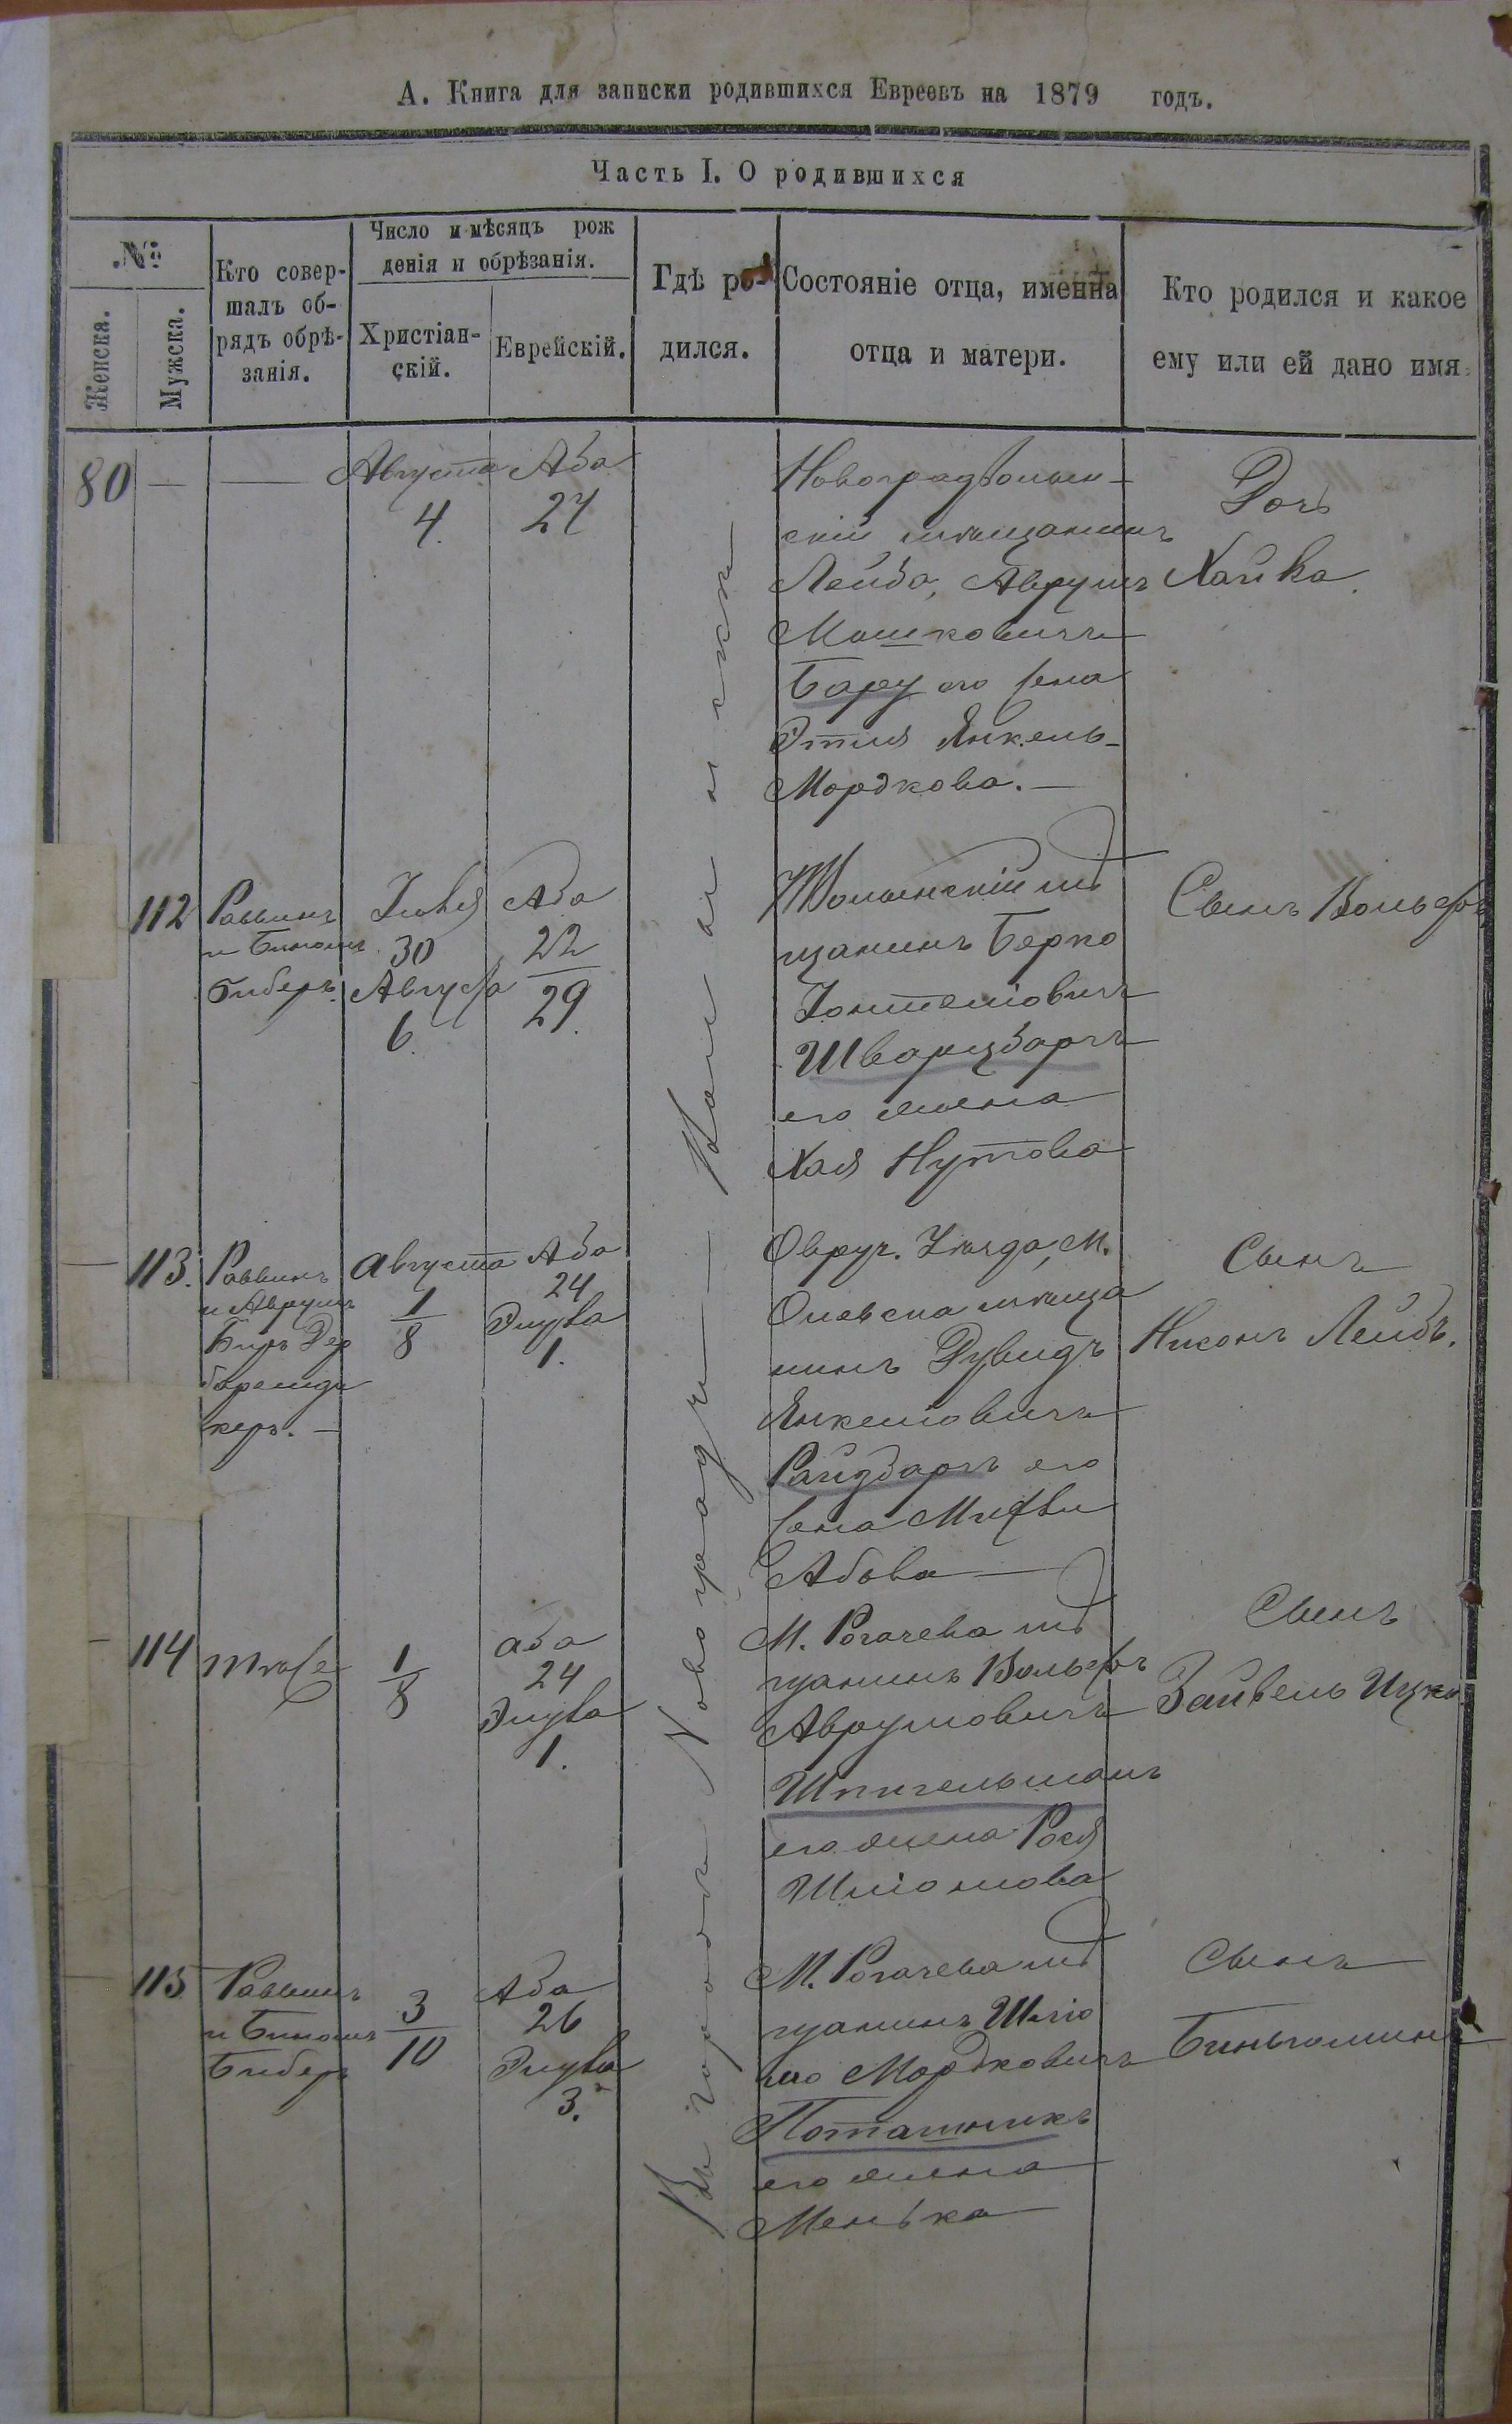 А. Книга для записки родившихся Евреевъ на 1879 годъ.
Часть I. О родившихся
№
Женска.
Мужска.
Кто совер-
шалъ об-
рядъ обрѣ-
занія.
Число и мѣсяцъ рож
денія и обрѣзанія.
Христіан-
скій.
Еврейскій.
Гдѣ ро-
дился.
Состояніе отца, именна
отца и матери.
Кто родился и какое
ему или ей дано имя.
Въ городѣ Новоградѣ-Волынскѣ
80 — —
Августа
4.
Аба
27
Новоградволын-
скій мѣщанинъ
Лейба, Аврумъ
Мошковичъ
Бару его жена
Этля Янкель-
Мордкова. —
Дочь
Хайка.
112
Раввинъ
и Биномъ
Биберъ.
Іюля
30
Августа
6.
Аба
22
29.
Волынскій мѣ
щанинъ Берко
Іонтелiовичъ
Шварцбергъ
его жена
Хая Нутова
Сынъ Вольфъ
— 113.
Раввинъ
и Аврумъ
Беръ Дер
баремди
керъ. —
Августа
1
8
Аба
24
Элула
1.
Овруч. Уѣзда, М.
Олевска мѣща
нинъ Дувидъ
Янкелiовичъ
Райзбергъ его
жена
Абова —
Сынъ
Нисонъ Лейбъ.
— 114
Тоже
1
8
Аба
24
Элула
1.
М. Рогачева мѣ
щанинъ Вольфъ
Аврумовичъ
Шпигельманъ
его жена Рося
Шліомова
Сынъ
Зайвель Ицко
— 115
Раввинъ
и Биномъ
Биберъ
3
10
Аба
26
Элула
3.
М. Рогачева мѣ
щанинъ Шліо
мо Мордковичъ
Поташникъ
его жена
Менька
Сынъ
Биньоминъ